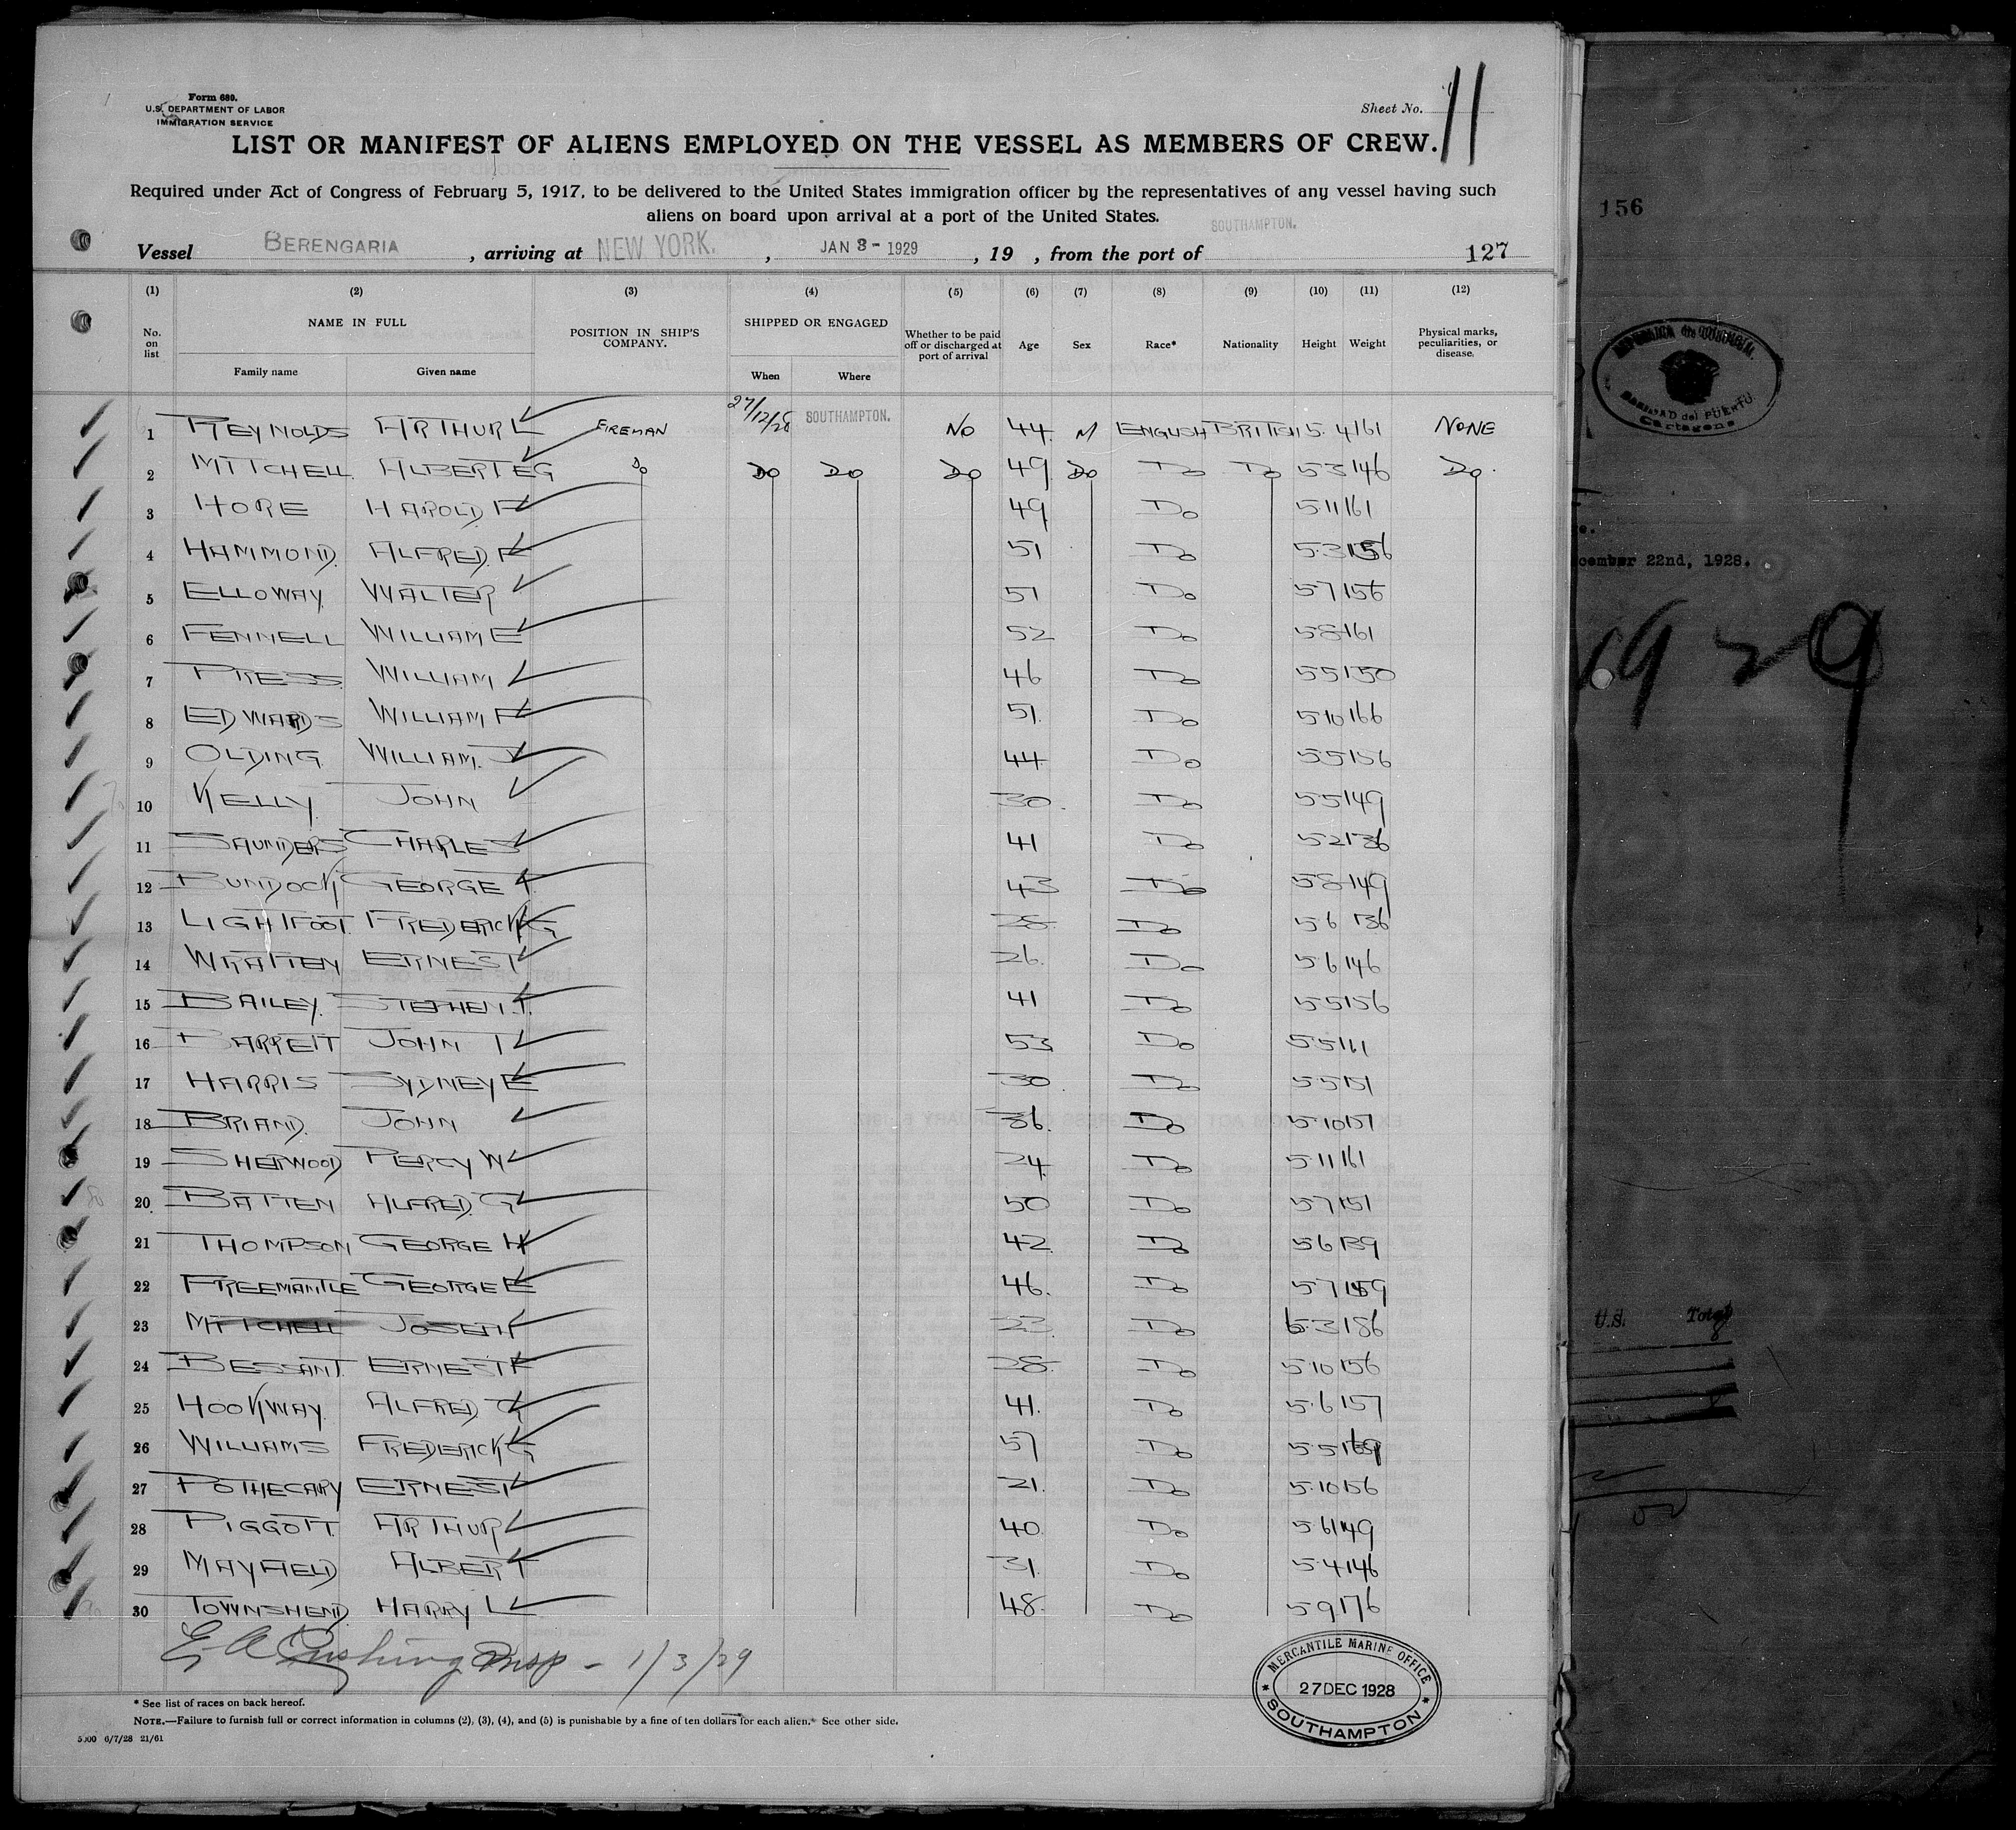 Form 680.
U.S. DEPARTMENT OF LABOR
IMMIGRATION SERVICE
Sheet No. 11
LIST OR MANIFEST OF ALIENS EMPLOYED ON THE VESSEL AS MEMBERS OF CREW.
Required under Act of Congress of February 5, 1917, to be delivered to the United States immigration officer by the representatives of any vessel having such
aliens on board upon arrival at a port of the United States.
Vessel BERENGARIA, arriving at NEW YORK., JAN 3- 1929, 19 , from the port of SOUTHAMPTON. 127
(1) (2) (3) (4) (5) (6) (7) (8) (9) (10) (11) (12)
No. on list NAME IN FULL Family name Given name POSITION IN SHIP'S COMPANY. SHIPPED OR ENGAGED When Where Whether to be paid off or discharged at port of arrival Age Sex Race* Nationality Height Weight Physical marks, peculiarities, or disease.
1 REYNOLDS ARTHUR L FIREMAN 27/12/28 SOUTHAMPTON. NO 44 M ENGLISH BRITISH 5.4 161 NONE
2 MITCHELL ALBERT EG Do Do Do Do 49 Do Do Do 5 3 146 Do
3 HORE HAROLD F 49 Do 5 11 161
4 HAMMOND. ALFRED. F 51 Do 5.3 156
5 ELLOWAY WALTER 51 Do 5 7 156
6 FENNELL WILLIAM E 52 Do 5 8 161
7 PRESS WILLIAM 46 Do 5 5 150
8 EDWARDS WILLIAM F 51. Do 5 10 166
9 OLDING WILLIAM. J 44 Do 5 5 156
10 KELLY JOHN 30. Do 5 5 149
11 SAUNDERS CHARLES 41 Do 5 2 136
12 BUNDOCK GEORGE T. 43 Do 5 8 149
13 LIGHTFOOT. FREDERICK G 28 Do 5 6 136
14 WRATTEN ERNEST 26. Do 5 6 146
15 BAILEY. STEPHEN. T. 41 Do 5 5 156
16 BARRETT JOHN T 53 Do 5 5 161
17 HARRIS SYDNEY E 30. Do 5 5 151
18 BRIAND. JOHN 36. Do 5.10 157
19 SHERWOOD PERCY W 24. Do 5 11 161
20 BATTEN ALFRED. G 50 Do 5 7 151
21 THOMPSON GEORGE H 42 Do 5 6 139
22 FREEMANTLE GEORGE E 46. Do 5 7 159
23 MITCHELL JOSEPH 23 Do 6.3 186
24 BESSANT. ERNEST F 28. Do 5 10 156
25 HOOKWAY. ALFRED G 41. Do 5.6 157
26 WILLIAMS FREDERICK G 57 Do 5 5 169
27 POTHECARY ERNEST 21. Do 5.10 156
28 PIGGOTT ARTHUR 40. Do 5 6 149
29 MAYFIELD ALBERT 31. Do 5.4 146
30 TOWNSHEND HARRY L 48. Do 5 9 176
E A Cushing Insp - 1/3/29
MERCANTILE MARINE OFFICE
27 DEC 1928
SOUTHAMPTON
* See list of races on back hereof.
NOTE.—Failure to furnish full or correct information in columns (2), (3), (4), and (5) is punishable by a fine of ten dollars for each alien. See other side.
5000 6/7/28 21/61
156
Cartagena
22nd, 1928.
1929
U.S. Total